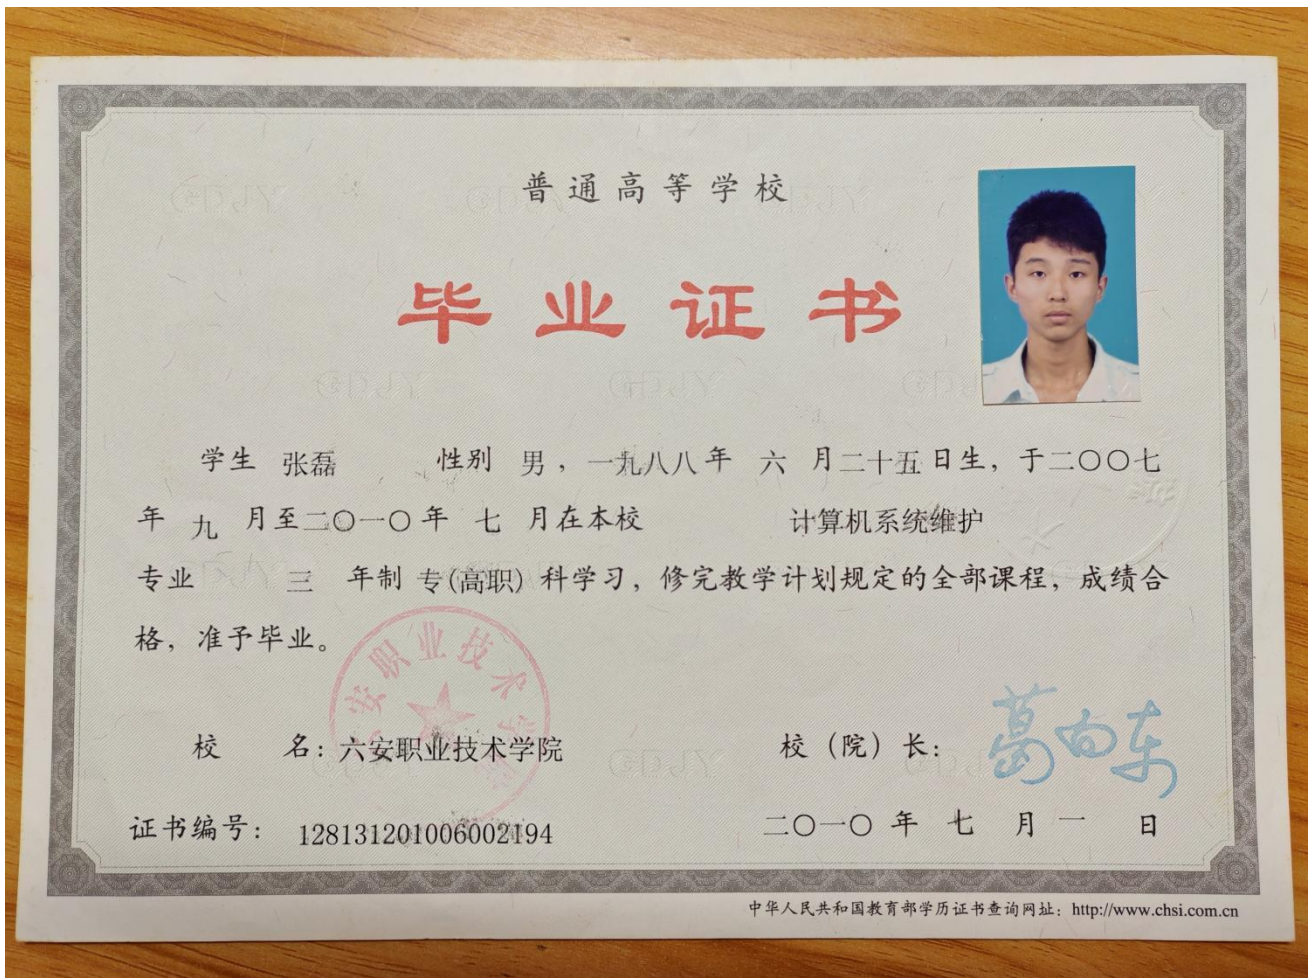 普通高等学校
毕业证书
学生 张磊 性别 男，一九八八年 六 月二十五日生，于二〇〇七
年 九 月至二〇一〇年 七 月在本校 计算机系统维护
专业 三 年制 专(高职) 科学习，修完教学计划规定的全部课程，成绩合
格，准予毕业。
六安职业技术学院
校 名：六安职业技术学院 校（院）长：葛向东
证书编号：128131201006002194 二〇一〇年 七 月 一 日
中华人民共和国教育部学历证书查询网址：http://www.chsi.com.cn